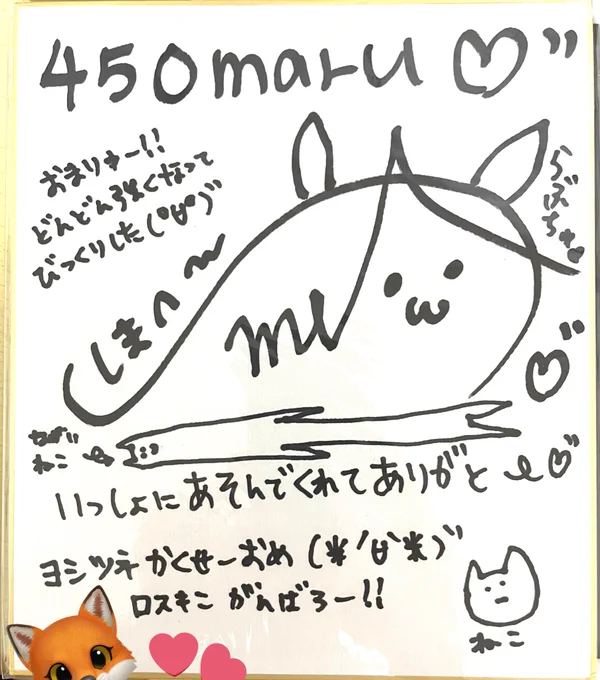 450maru♡"
おまりゅー!!
どんどん強くなって
びっくりした(°∀°)"
らぶちゅ
しまへ〜
me
ω
ながい
ねこ
いっしょにあそんでくれてありがと
ヨシツネかくせーおめ(*'∀'*)"
ロスキニがんばろー!!
ねこ